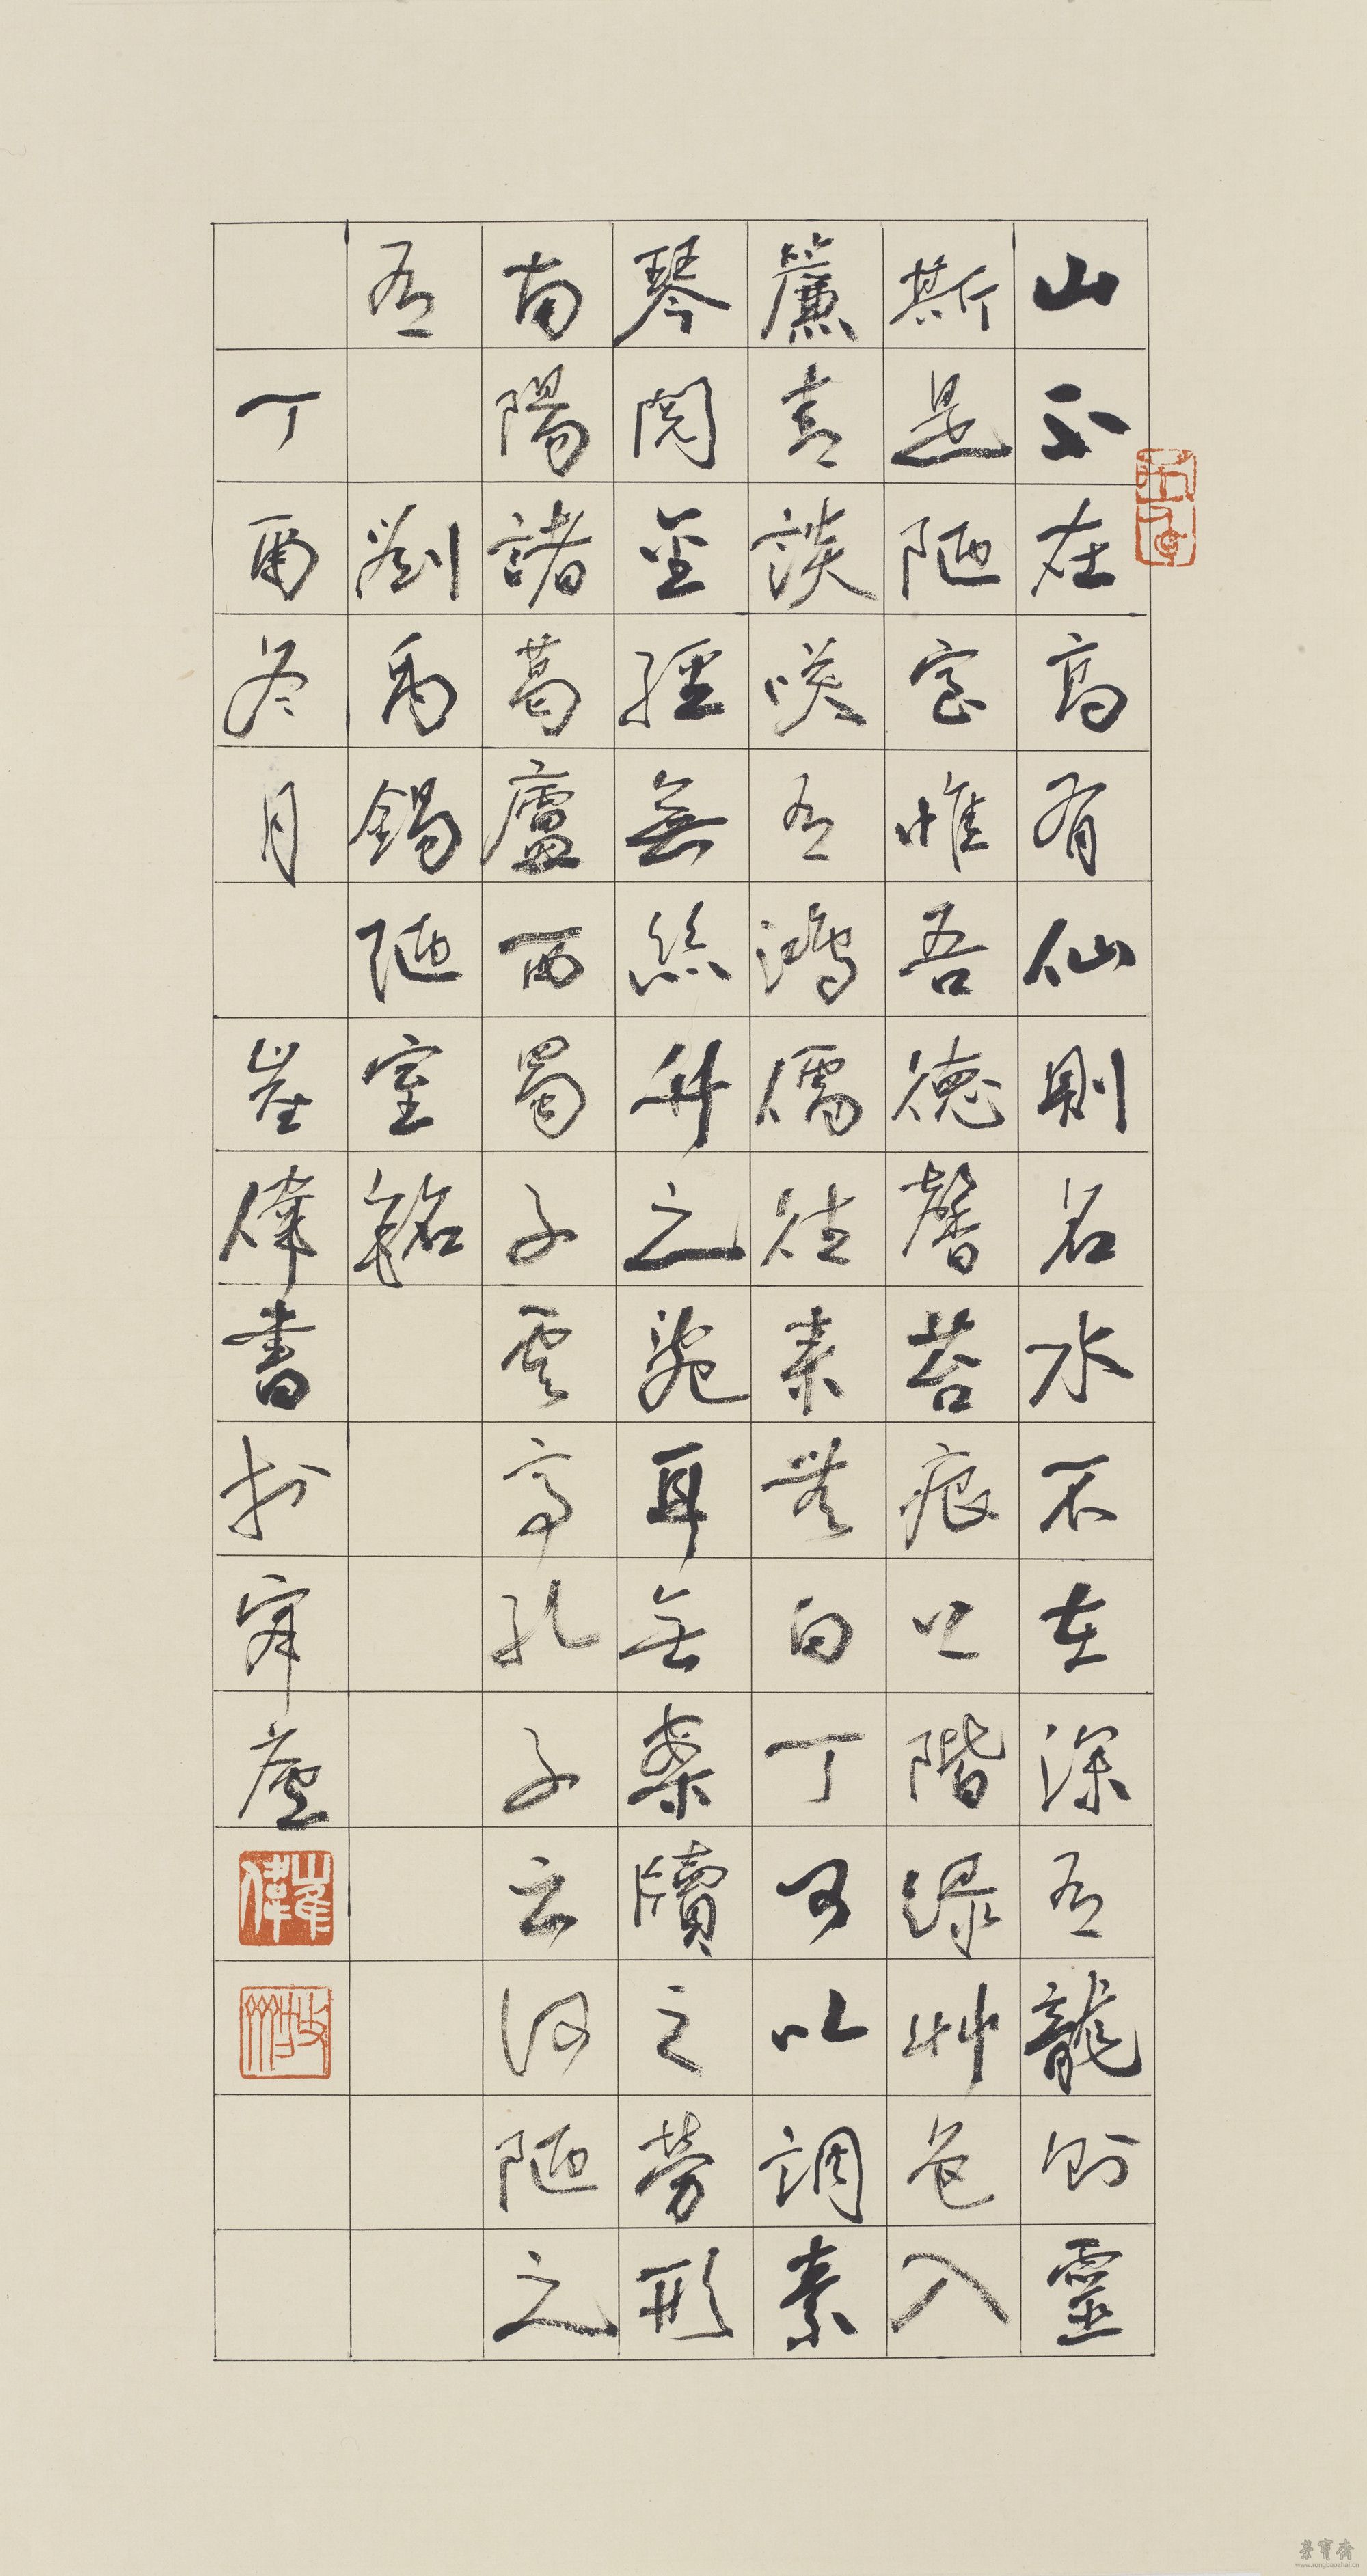 山不在高有仙則名水不在深有龍則靈
斯是陋室惟吾德馨苔痕上階綠艸色入
簾青談咲有鴻儒往來無白丁可以調素
琴閱金經無絲竹之亂耳無案牘之勞形
南陽諸葛廬西蜀子雲亭孔子云何陋之
有 劉禹錫陋室銘
丁酉冬月 崔偉書於廬
崔偉
榮寶齋
www.rongbaozhai.cn